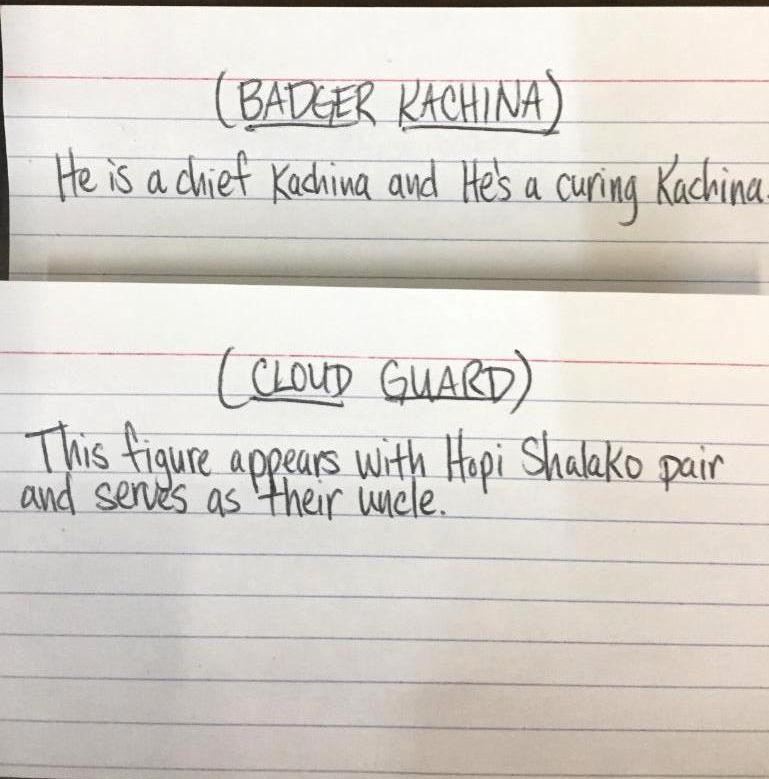 (BADGER KACHINA)
He is a chief Kachina and He's a curing Kachina.
(CLOUD GUARD)
This figure appears with Hopi Shalako pair
and serves as their uncle.